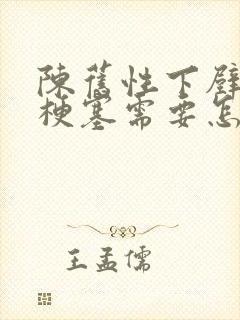 陳舊性下壁
梗塞需要怎
王孟儒